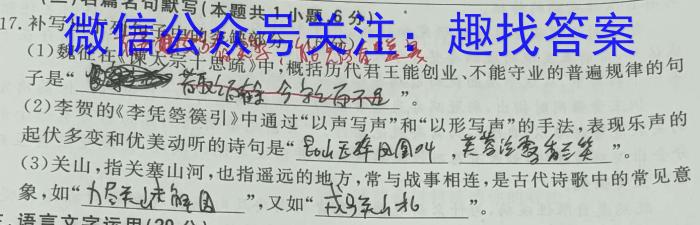 (二)名篇名句默写(本题共1小题,6分)
微信公众号关注:趣找答案
17.补写
(1)魏征在《谏太宗十思疏》中,概括历代君王能创业、不能守业的普遍规律的句
子是“ ”。
(2)李贺的《李凭箜篌引》中通过“以声写声”和“以形写声”的手法,表现乐声的
起伏多变和优美动听的诗句是“昆山玉碎凤凰叫,芙蓉泣露香兰笑”。
(3)关山,指关塞山河,也指遥远的地方,常与战事相连,是古代诗歌中的常见意
象,如“力尽关山未解围”,又如“戎马关山北”。
语言文字运用(20分)